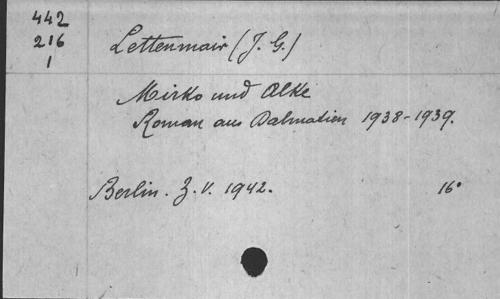 442
216
1
Lettenmair (J. G.)
Mirko und Alke
Roman aus Dalmatien 1938-1939.
Berlin. Z. V. 1942. 16°